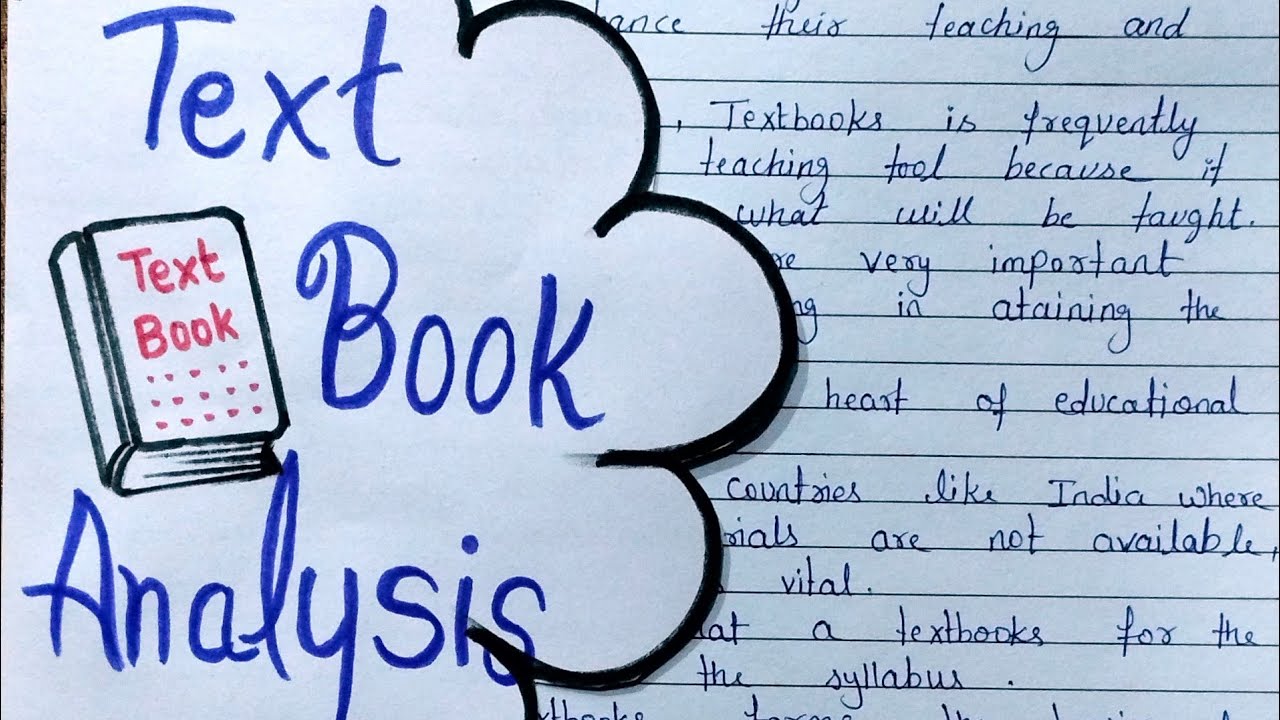 Text
Book
Analysis
Text
Book
their teaching and
, Textbooks is frequently
teaching tool because it
what will be taught.
very important
in ataining the
heart of educational
countries like India where
are not available,
vital.
a textbooks for the
the syllabus .